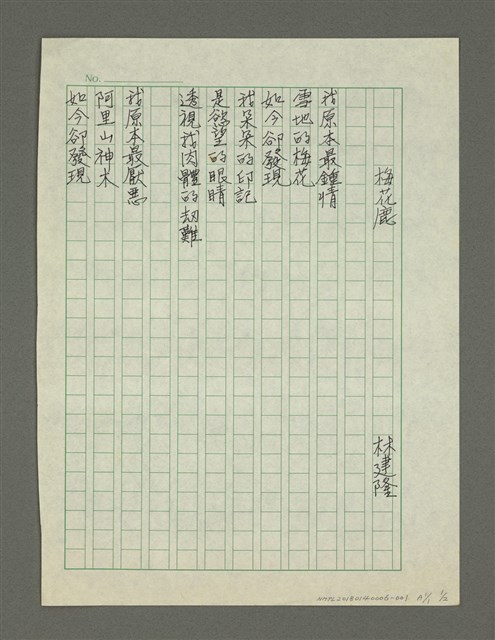 No.
梅花鹿
林建隆
我原本最鍾情
雪地的梅花
如今卻發現
我朵朵的印記
是慾望的眼睛
透視我肉體的劫難
我原本最厭惡
阿里山神木
如今卻發現